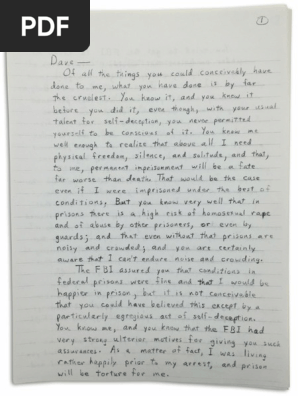 PDF
1
Dave —
Of all the things you could conceivably have
done to me, what you have done is by far
the cruelest. You know it, and you knew it
before you did it, even though, with your usual
talent for self-deception, you never permitted
yourself to be conscious of it. You know me
well enough to realize that above all I need
physical freedom, silence, and solitude, and that,
to me, permanent imprisonment will be a fate
far worse than death. That would be the case
even if I were imprisoned under the best of
conditions. But you know very well that in
prisons there is a high risk of homosexual rape
and of abuse by other prisoners, or even by
guards; and that even without that prisons are
noisy and crowded; and you are certainly
aware that I can't endure noise and crowding.
The FBI assured you that conditions in
federal prisons were fine and that I would be
happier in prison, but it is not conceivable
that you could have believed this except by a
particularly egregious act of self-deception.
You know me, and you know that the FBI had
very strong ulterior motives for giving you such
assurances. As a matter of fact, I was living
rather happily prior to my arrest, and prison
will be torture for me.